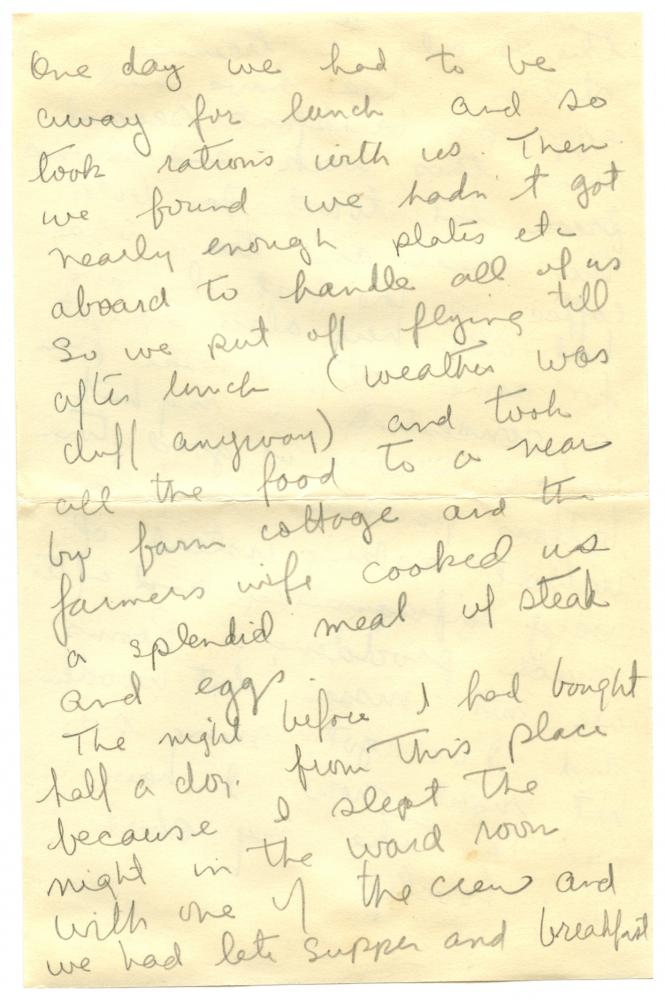 One day we had to be
away for lunch and so
took rations with us. Then
we found we hadn't got
nearly enough plates etc
aboard to handle all of us
So we put off flying till
after lunch (weather was
duff anyway) and took
all the food to a near
by farm cottage and the
farmers wife cooked us
a splendid meal of steak
and eggs.
The night before I had bought
half a doz. from this place
because I slept the
night in the ward room
with one of the crew and
we had late supper and breakfast